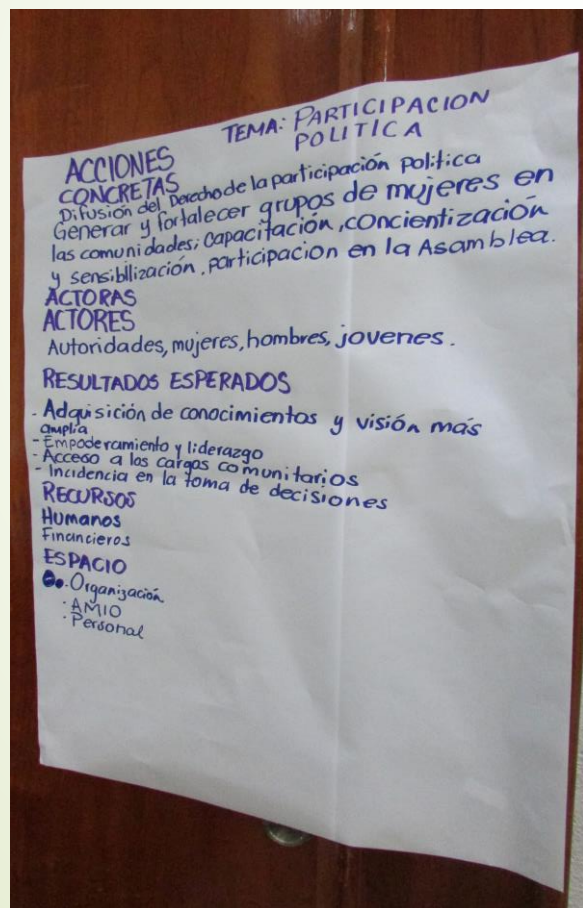 TEMA: PARTICIPACION
POLITICA
ACCIONES
CONCRETAS
Difusión del Derecho de la participación politica
Generar y fortalecer grupos de mujeres en
las comunidades; capacitación, concientización
y sensibllización, participacion en la Asamblea.
ACTORAS
ACTORES
Autoridades, mujeres, hombres, jovenes.
RESULTADOS ESPERADOS
- Adquisición de conocimientos y visión más
amplia
- Empoderamiento y liderazgo
- Acceso a los cargos comunitarios
- Incidencia en la toma de decisiones
RECURSOS
Humanos
Financieros
ESPACIO
· Organización
· AMIO
· Personal